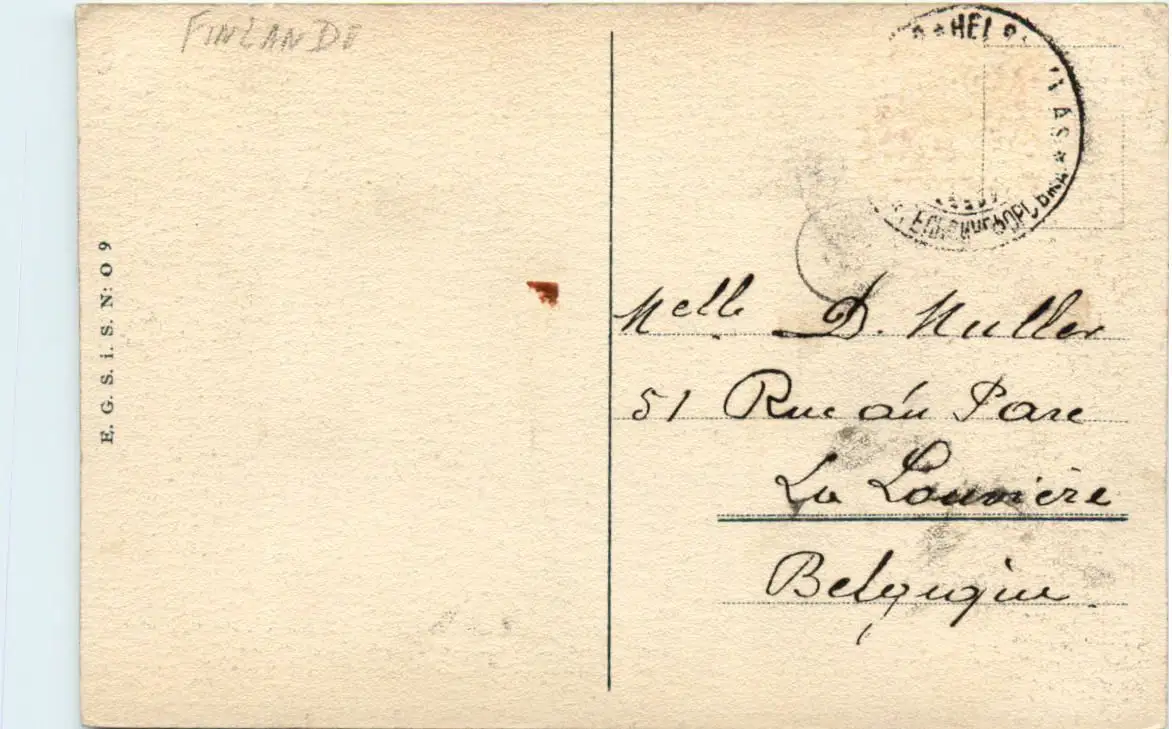 FINLANDE
E. G. S. i. S. N: O 9
Melle D. Muller
51 Rue du Parc
La Louvière
Belgique